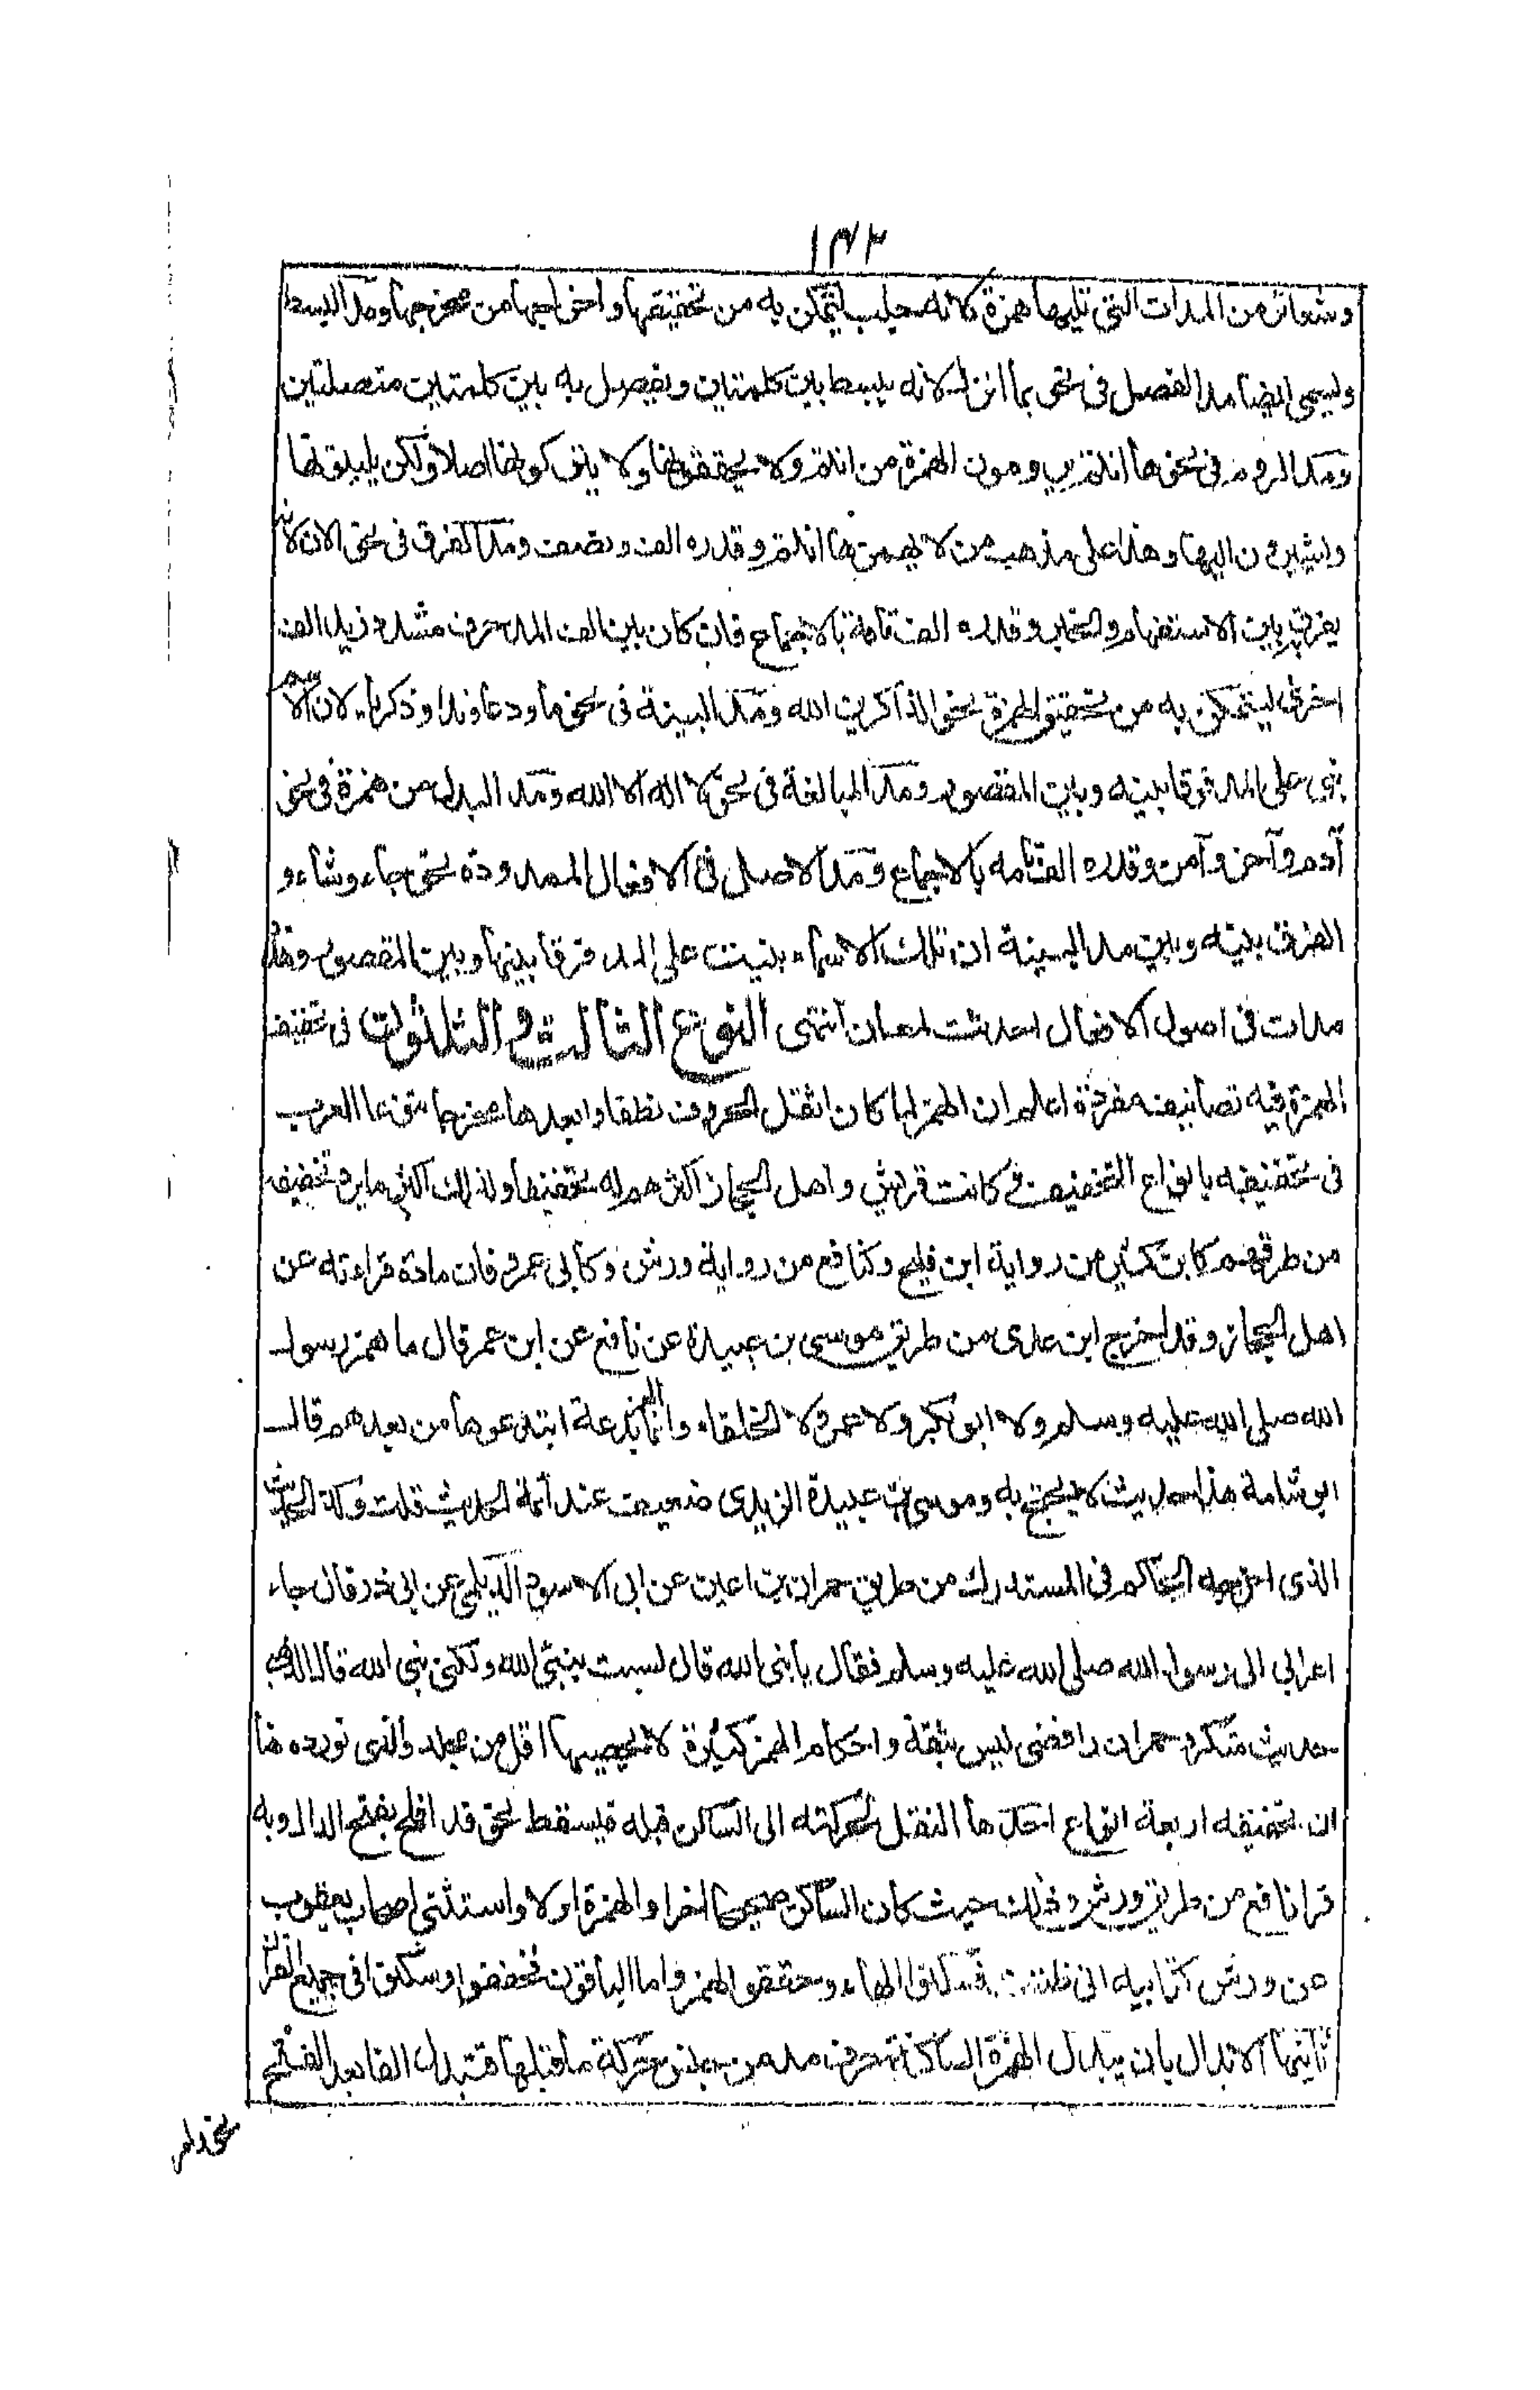 ١٣٢
وشعائر من المدات التي تليها همزة لانه جلب ليتمكن به من تحقيقها واخراجها من مخرجها ومد البسط
وليسمى ايضا مد الفصل فى نحو بما انزل لانه يبسط بين كلمتين ويفصل به بين كلمتين متصلتين
ومد الروم فى نحو ها انتم يرومون الهمزة من انتم ولا يحققونها ولا يتركونها اصلا ولكن يلينونها
ويشيرون اليها وهذا على مذهب من لا يهمز ها انتم وقدره الف ونصف ومد الفرق فى نحو الان لانه
يفرق به بين الاستفهام والخبر وقدره الف تامة بالاجماع فان كان بين الف المد حرف مشدد زيد الف
اخرى ليتمكن به من تحقيق الهمزة نحو الذاكرين الله ومد البنية فى نحو ماء ودعاء ونداء وذكرياء لان الاسم
بنى على المد فرقا بينه وبين المقصور ومد المبالغة فى نحو لا اله الا الله ومد البدل من همزة فى نحو
آدم وآخر وآمن وقدره الف تامه بالاجماع ومد الاصل فى الافعال الممدودة نحو جاء وشاء و
الفرق بينه وبين مد البنية ان تلك الاسماء بنيت على المد فرقا بينها وبين المقصور وهذه
مدات فى اصول الافعال احدثت لمعان انتهى النوع الثالث والثلثون فى تخفيف
الهمزة فيه تصانيف مفردة اعلم ان الهمز لما كان اثقل الحروف نطقا وابعدها مخرجا تنوع العرب
فى تخفيفه بانواع التخفيف وكانت قريش واهل الحجاز اكثرهم له تخفيفا ولذلك اكثر ما يرد تخفيفه
من طرقهم كابن كثير من رواية ابن فليح وكنافع من رواية ورش وكابى عمرو فان مادة قراءته عن
اهل الحجاز وقد اخرج ابن عدى من طريق موسى بن عبيدة عن نافع عن ابن عمر قال ما همز رسول
الله صلى الله عليه وسلم ولا ابو بكر ولا عمر ولا الخلفاء وانما الهمز بدعة ابتدعوها من بعدهم قال
ابو شامة هذا حديث لا يحتج به وموسى بن عبيدة الزيدى ضعيف عند ائمة الحديث قلت وكذا الحديث
الذى اخرجه الحاكم فى المستدرك من طريق حمران بن اعين عن ابى الاسود الديلمى عن ابى ذر قال جاء
اعرابى الى رسول الله صلى الله عليه وسلم فقال يا نبئ الله قال لست بنبئ الله ولكنى نبى الله قال الذهبى
حديث منكر وحمران رافضى ليس بثقة واحكام الهمز كثيرة لا يحصيها اقل من مجلد والذى نورده هنا
ان تخفيفه اربعة انواع احدها النقل لحركته الى الساكن قبله فيسقط نحو قد افلح بفتح الدال وبه
قرا نافع من طريق ورش وذلك حيث كان الساكن صحيحا اخرا والهمزة اولا واستثنى اصحاب يعقوب
عن ورش كتابيه انى ظننت فسكنوا الهاء وحققوا الهمز واما الباقون فحققوا وسكنوا فى جميع القرآن
ثانيها الابدال بان يبدل الهمزة الساكنة حرف مد من جنس حركة ما قبلها فتبدل الفا بعد الفتح
نحو وامر